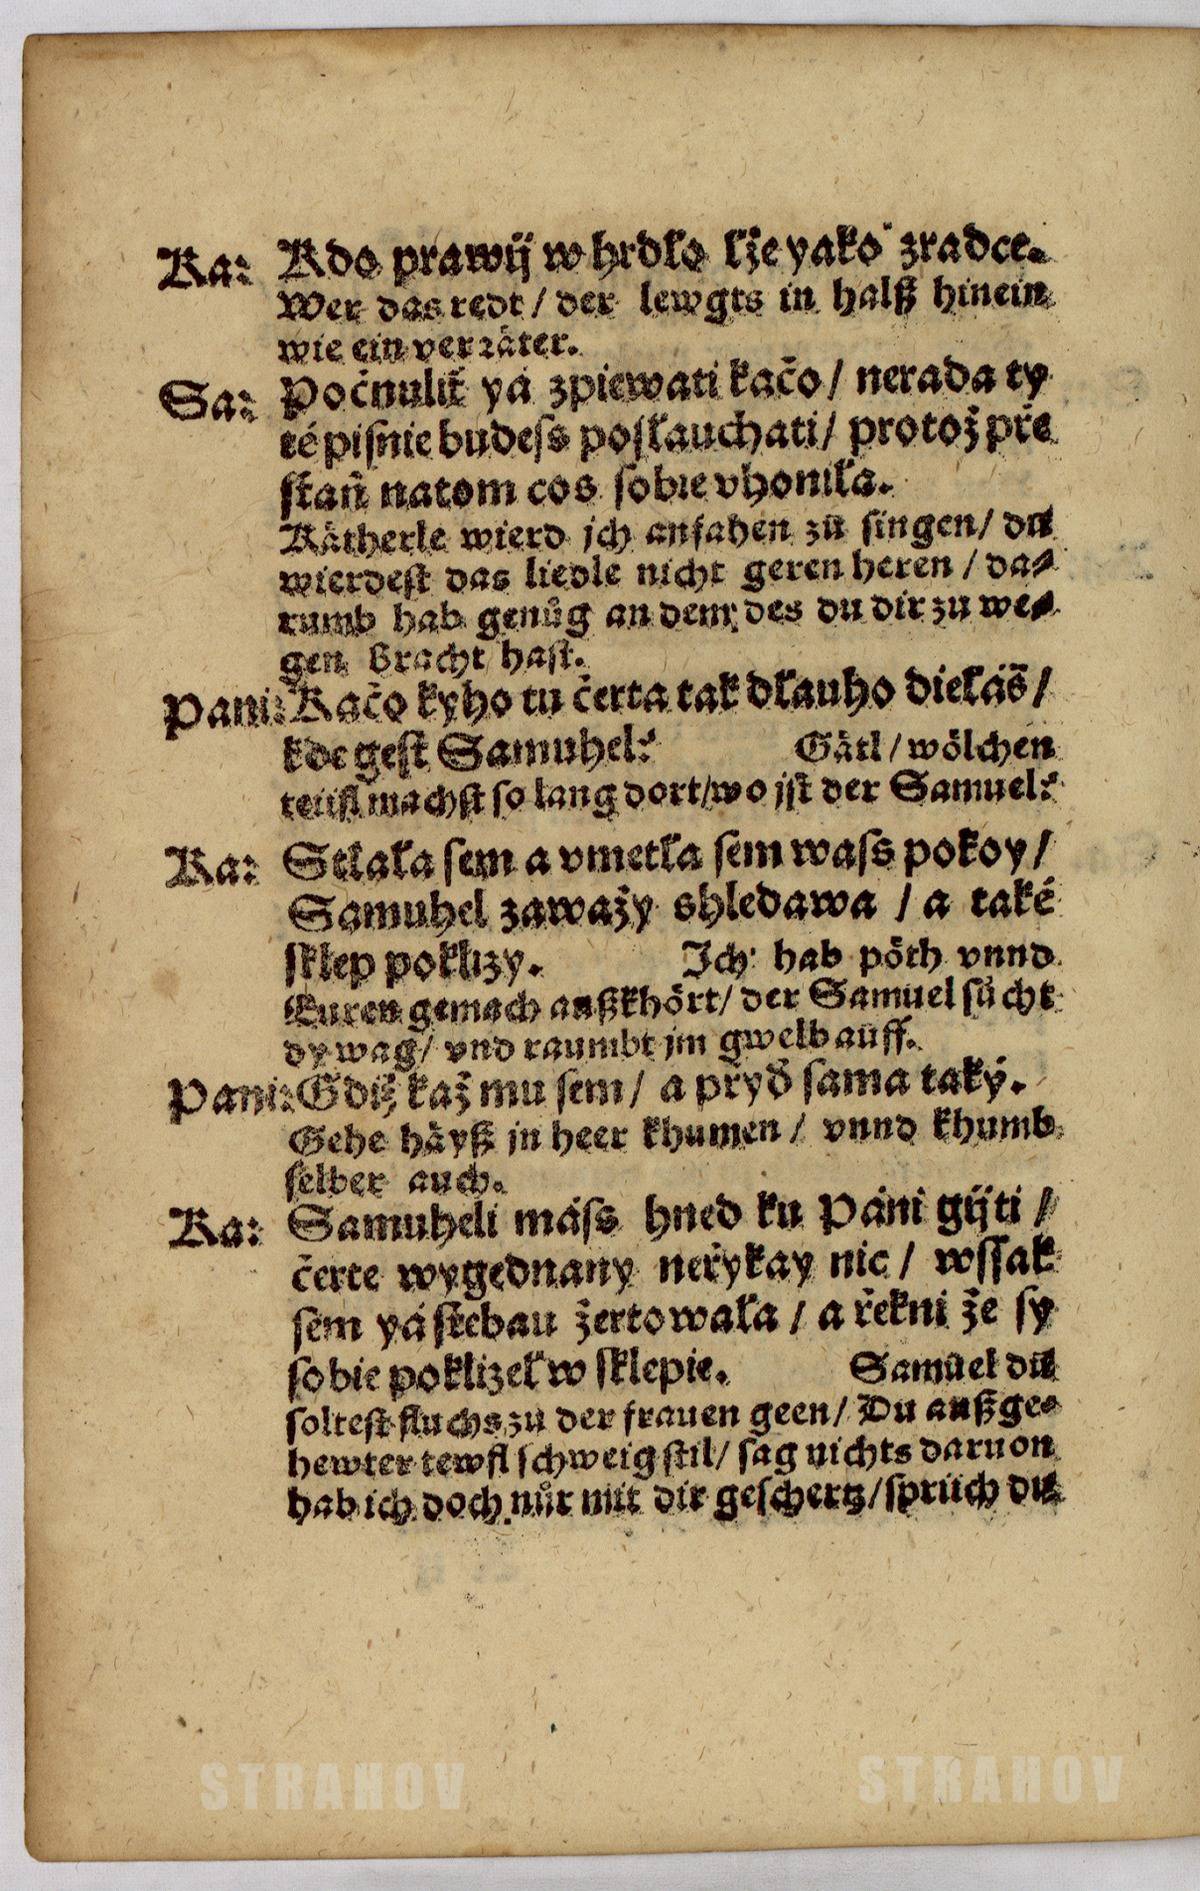 Ka: Kdo prawij w hrdlo lže yako zradce.
Wer das redt / der lewgts in halß hinein
wie ein verräter.
Sa: Počnulit yá zpiewati kačo / nerada ty
té pisnie budess poslauchati / protož pře
staň natom cos sobie vhonila.
Kätherle wierd jch anfahen zů singen / du
wierdest das liedle nicht geren heren / da-
rumb hab genůg an dem, des du dir zu we-
gen bracht hast.
Pani: Kačo kyho tu čerta tak dlauho dieláš /
kde gest Samuhel? Gätl / wölchen
teüfl machst so lang dort / wo jst der Samuel?
Ka: Stlala sem a vmetla sem wass pokoy /
Samuhel zawažy shledawa / a také
sklep poklizy. Ich hab pöth vnnd
Euren gemach außkhört / der Samuel sůcht
dy wag / vnd raumbt jm gwelb auff.
Pani: Gdiž kaž mu sem / a přyď sama taký.
Gehe häyß jn heer khumen / vnnd khumb
selber auch.
Ka: Samuheli máss hned ku Páni gijti /
čerte wygednany neřykay nic / wssak
sem yá stebau žertowala / a řekni že sy
sobie poklizel w sklepie. Samuel du
soltest fluchs zu der frauen geen / Du außge-
hewter tewfl schweig stil / sag nichts daruon
hab ich doch nůr mit dir geschertz / sprüch du
STRAHOV STRAHOV